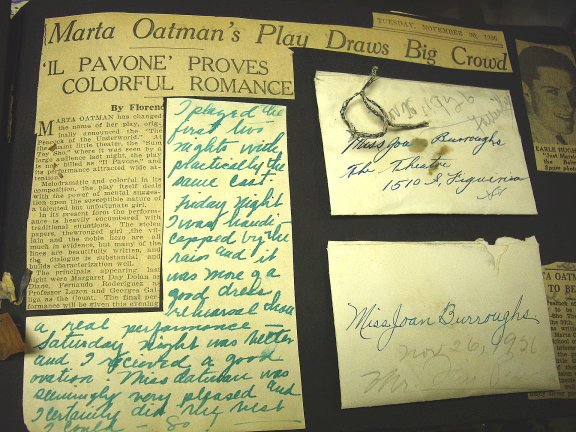 Marta Oatman's Play Draws Big Crowd
TUESDAY, NOVEMBER 30, 1926
'IL PAVONE' PROVES
COLORFUL ROMANCE
By Florenc
MARTA OATMAN has changed
the name of her play, orig-
inally announced the "The
Peacock of the Underworld." At
little theater, the "Sum
Sho" where it was seen by a
large audience last night, the play
is now billed as "Il Pavone," and
its performance attracted wide at-
tention.
Melodramatic and colorful in its
conception, the play itself deals
with the power of mental sugges-
tion upon the susceptible nature of
a talented but unfortunate girl.
In its present form the perform-
ance is heavily encumbered with
traditional situations. The stolen
papers, thewronged girl, the vil-
lain and the noble hero are all
much in evidence, but many of the
lines are forcefully written, and
the dialogue is substantial and
builds characterization well.
The principals appearing last
night were Margaret Day Dolan as
Diane, Fernando Roderiguez as
Professor Luzeo and Georges Gal-
liga as the Count. The final per-
formance will be given this evening.
I played the
first two
nights with
practically the
same cast.
Friday night
I was handi-
capped by the
rain and it
was more of a
good dress
rehearsal than
a real performance —
Saturday night was better
and I recieved a good
ovation. Miss Oatman was
seemingly very pleased and
I certainly did the best
I could — So
Miss Joan Burroughs
The Theatre
1510 S. Figueroa
Miss Joan Burroughs
Nov 26, 1926
Mr.
EARLE HUGHE
"Just Marrie
the Belmo
Spare photo
TA OATM
TO BE